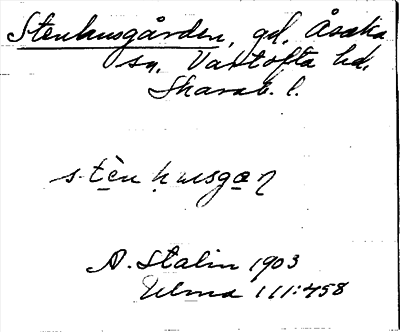 Stenhusgården, gd, Åsaka
sn, Vartofta hd,
Skarab. l.
stèn husgan
A. Stalin 1903
Ulma 111:458